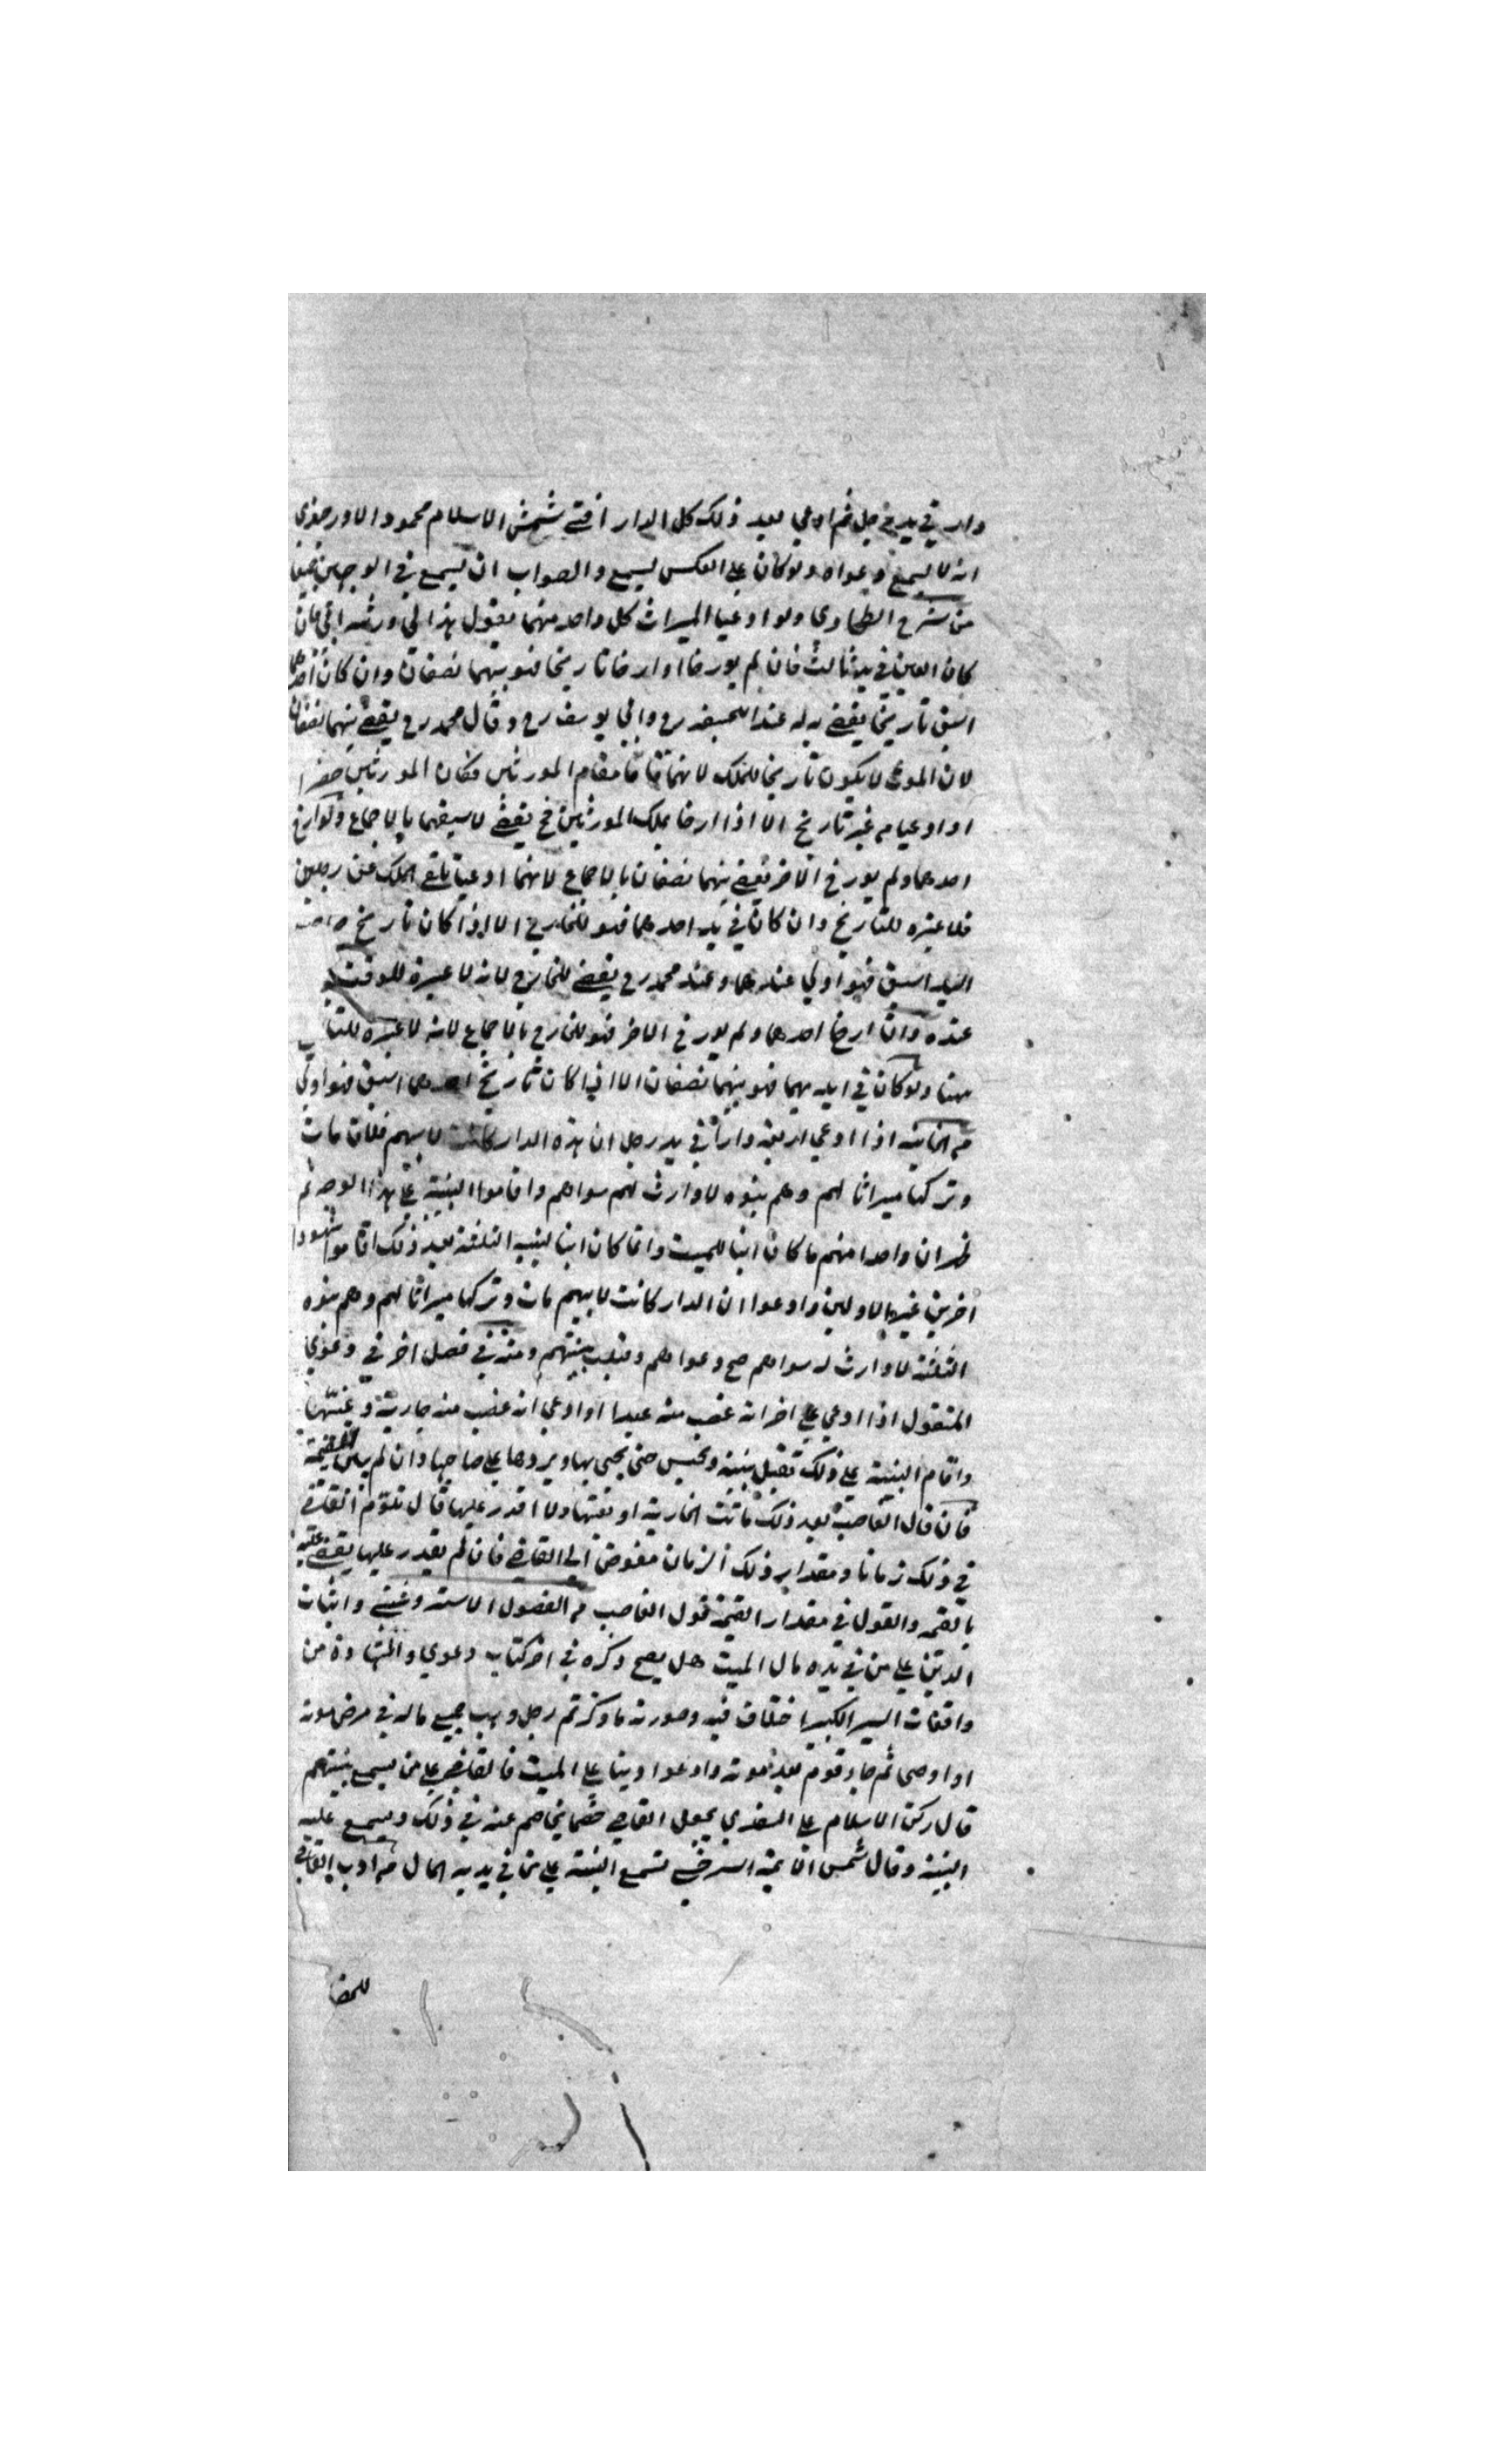 دار في يد رجل ثم ادعي بعد ذلك كل الدار افتي شمس الاسلام محمود الاورجندي
انه لا يسمع دعواه ولو كان علي العكس يسمع والصواب ان يسمع في الوجهين جميعا
من شرح الطحاوي ولو ادعيا الميراث كل واحد منهما يقول هذا لي ورثته ابي فان
كان العين في يد ثالث فان لم يورخا او ارخا تاريخا فهو بينهما نصفان وان كان احدهما
اسبق تاريخا يقضي به له عند ابي حنيفه رح وابي يوسف رح وقال محمد رح يقضي بينهما نصفان
لان الموت لا يكون تاريخا للملك لانهما قاما مقام المورثين فكان المورثين حضرا
او ادعيا من غير تاريخ الا اذا ارخا بملك المورثين فح يقضي لاسبقهما بالاجماع ولو ارخ
احدهما ولم يورخ الاخر يقضي بينهما نصفان بالاجماع لانهما ادعيا تلقي الملك عن رجلين
فلا عبره للتاريخ وان كان في يد احدهما فهو للخارج الا اذا كان تاريخ صاحب
اليد اسبق فهو اولي عندهما وعند محمد رح يقضي للخارج لانه لا عبرة للوقت
عنده وان ارخا احدهما ولم يورخ الاخر فهو للخارج بالاجماع لانه لا عبره للتا
ههنا ولو كان في ايديهما فهو بينهما نصفان الا اذا كان تاريخ احدهما اسبق فهو اولي
من الخانيه اذا ادعي اربعة دارا في يد رجل ان هذه الدار كانت لابيهم فلان مات
وتركها ميراثا لهم وهم بنوه لا وارث لهم سواهم واقاموا البينة علي هذا الوجه ثم
ظهر ان واحدا منهم ما كان ابنا للميت وانما كان ابنا لبنيه الثلثة بعد ذلك اقاموا شهودا
اخرين غير الاولين وادعوا ان الدار كانت لابيهم مات وتركها ميراثا لهم وهم بنوه
الثلثة لا وارث له سواهم صح دعواهم وتقبل بينتهم ومنه في فصل اخر في دعوي
المنقول اذا ادعي علي اخر انه غصب منه عبدا او ادعي انه غصب منه جارية وغيبها
واقام البينة علي ذلك تقبل بينته ويحبس حتي يجي بها ويردها علي صاحبها وان لم يبين القيمة
فان قال الغاصب بعد ذلك ماتت الجارية او بعتها ولا اقدر عليها قال تلوم القاضي
في ذلك زمانا ومقدار ذلك الزمان مفوض الي القاضي فان لم يقدر عليها يقضي عليه
بالقيمه والقول في مقدار القيمة قول الغاصب من الفصول الاستروشني واثبات
الدين علي من في يده مال الميت هل يصح ذكره في اخر كتاب دعوي والشهادة من
واقعات السير الكبير اختلاف فيه وصورته ما ذكر ثم رجل وهب جميع ماله في مرض موته
او اوصي ثم جاء قوم بعد موته وادعوا دينا علي الميت فالقاضي علي من يسمع بينتهم
قال ركن الاسلام علي السغدي يجعل القاضي خصما يخاصم عنه في ذلك ويسمع عليه
البينة وقال شمس الائمة السرخسي تسمع البينة علي من في يديه المال من ادب القاضي
للخصا